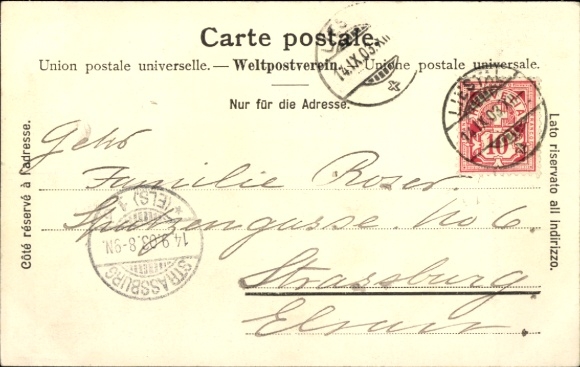 Carte postale.
Union postale universelle. — Weltpostverein. — Unione postale universale.
Nur für die Adresse.
Côté réservé à l'adresse.
Lato riservato all indirizzo.
14.IX.03.XII
LIESTAL
10
Familie Roser.
No 6.
Strassburg
STRASSBURG
14.9.03.8-9N.
(ELS) 1